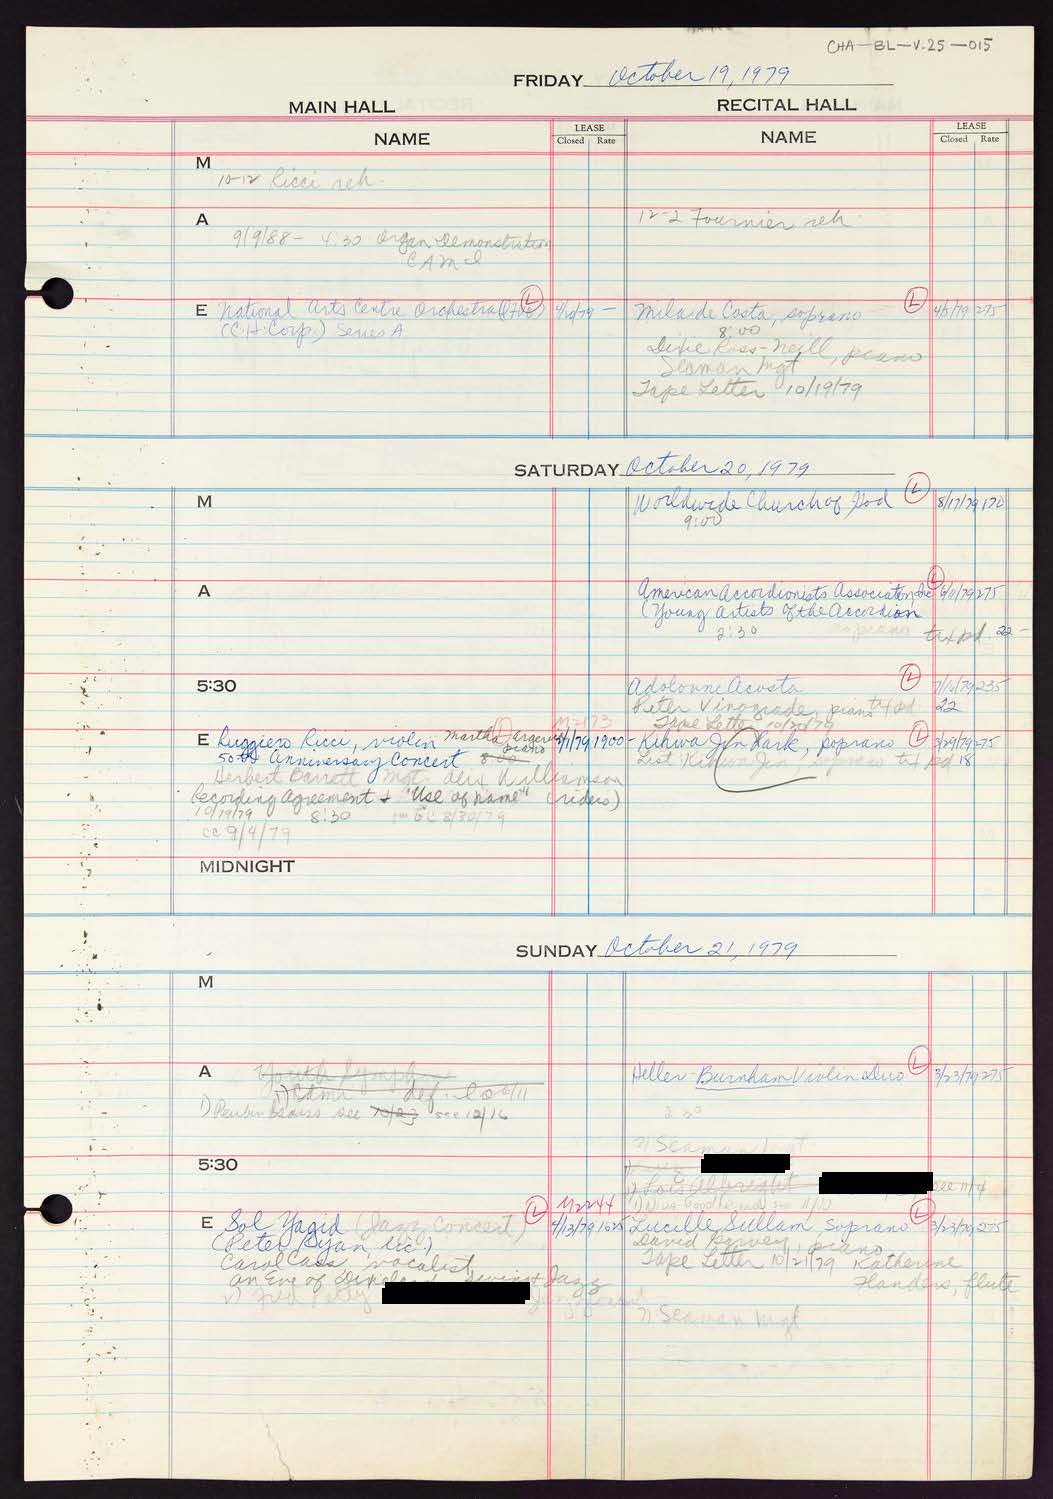 CHA-BL-V.25-015
FRIDAY October 19, 1979
MAIN HALL RECITAL HALL
NAME LEASE NAME LEASE
Closed Rate Closed Rate
M
10-12 Ricci reh.
A 12-2 Fournier reh.
4:30 Organ Demonstration
CAMI
E National Arts Centre Orchestra L 4/10/79 - Mila de Costa, soprano L 4/5/79 275
(C.H. Corp.) Series A 8:00
Dixie Ross-Neill, piano
Seaman Mgt
Tape Letter 10/19/79
SATURDAY October 20, 1979
M Worldwide Church of God L 8/17/79 170
9:00
A American Accordionists Association, Inc L 6/11/79 275
(Young Artists of the Accordion
2:30 soprano txt pd. 22-
5:30 Adolovne Acosta L 7/16/79 235
Peter Vinograde, piano txt pd 22
Tape Letter 10/20/79
M2173
E Ruggiero Ricci, violin Martha Argerich L 3/1/79 1900- Kihwa Jin Park, soprano L 3/29/79 275
piano
50th Anniversary Concert 8:00 List: Kihwa Jin, soprano txt pd 18
Herbert Barrett Mgt. Alix Williamson
Recording Agreement + "Use of name" (riders)
10/19/79 8:30 GC 8/30/79
cc 9/4/79
MIDNIGHT
SUNDAY October 21, 1979
M
A Youth Symph Heller-Burnham Violin Duo L 3/23/79 275
see 10/23 see 12/16
2:30
Seaman Mgt
5:30
1) Lois Albright see 11/4
M2244
E Sol Yaged (Jazz Concert) L 4/13/79 1625 Lucille Sullam soprano L 3/23/79 275
(Peter Dyan, Inc.) David Garvey, piano
Carol Cass, vocalist Tape Letter 10/21/79 Katherine
An Eve of Dixieland, Swing + Jazz Flanders, flute
Fred Petty
Seaman Mgt